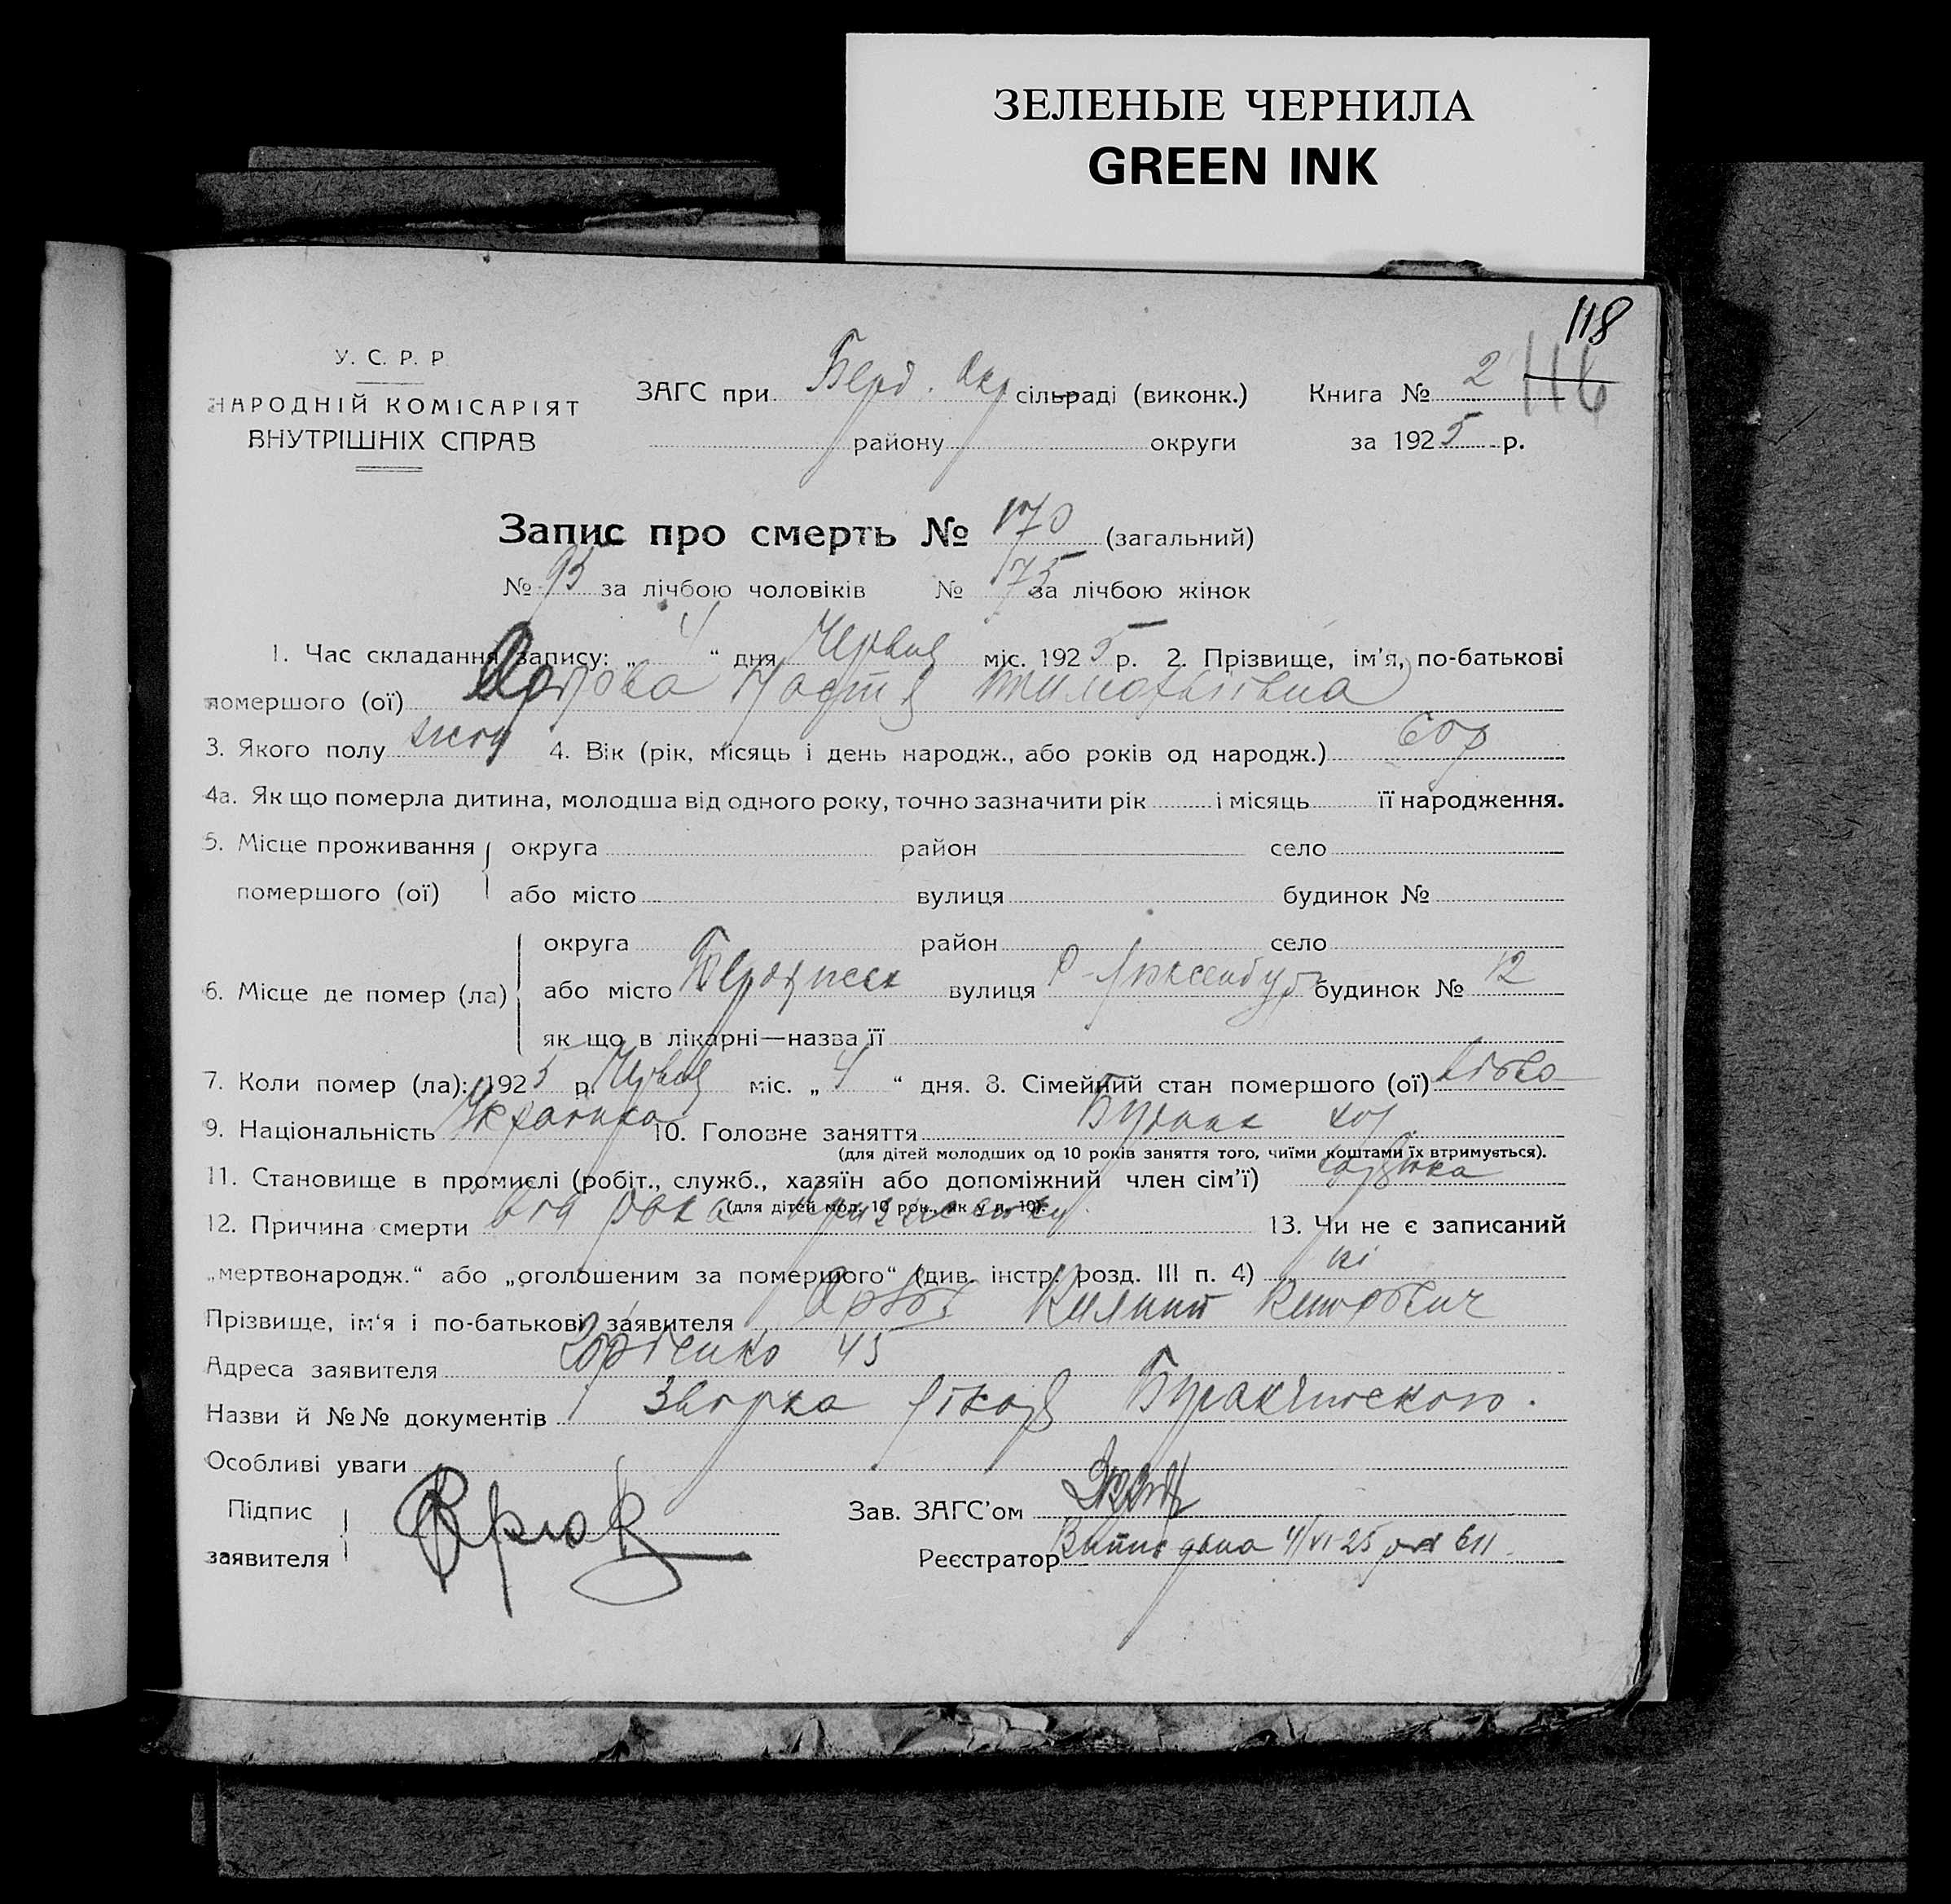 ЗЕЛЕНЫЕ ЧЕРНИЛА
GREEN INK
118
116
У. С. Р. Р
НАРОДНІЙ КОМІСАРІЯТ
ВНУТРІШНІХ СПРАВ
ЗАГС при Берд. Окр сільраді (виконк.) Книга № 2
району округи за 1925 р.
Запис про смерть № 170 (загальний)
№ 95 за лічбою чоловіків № 75 за лічбою жінок
1. Час складання запису: „ 4 “ дня Червня міс. 1925 р. 2. Прізвище, ім'я, по-батькові
помершого (ої) Настя
3. Якого полу жін 4. Вік (рік, місяць і день народж., або років од народж.) 60 р
4а. Як що померла дитина, молодша від одного року, точно зазначити рік і місяць її народження.
5. Місце проживання округа район село
помершого (ої) або місто вулиця будинок №
округа район село
6. Місце де помер (ла) або місто Бердянськ вулиця Р-Люксенбург будинок № 12
як що в лікарні—назва її
7. Коли помер (ла): 1925 р. Червня міс. „ 4 “ дня. 8. Сімейний стан помершого (ої)
9. Національність Українка 10. Головне заняття
(для дітей молодших од 10 років заняття того, чиїми коштами їх втримується).
11. Становище в промислі (робіт., служб., хазяїн або допоміжний член сім'ї)
(для дітей мол. 10 рок., як у п. 10).
12. Причина смерти від рака 13. Чи не є записаний
„мертвонародж.“ або „оголошеним за помершого“ (див. інстр. розд. III п. 4) ні
Прізвище, ім'я і по-батькові заявителя
Адреса заявителя 45
Назви й №№ документів
Особливі уваги
Підпис Зав. ЗАГС'ом
заявителя Реєстратор 4/VI-25